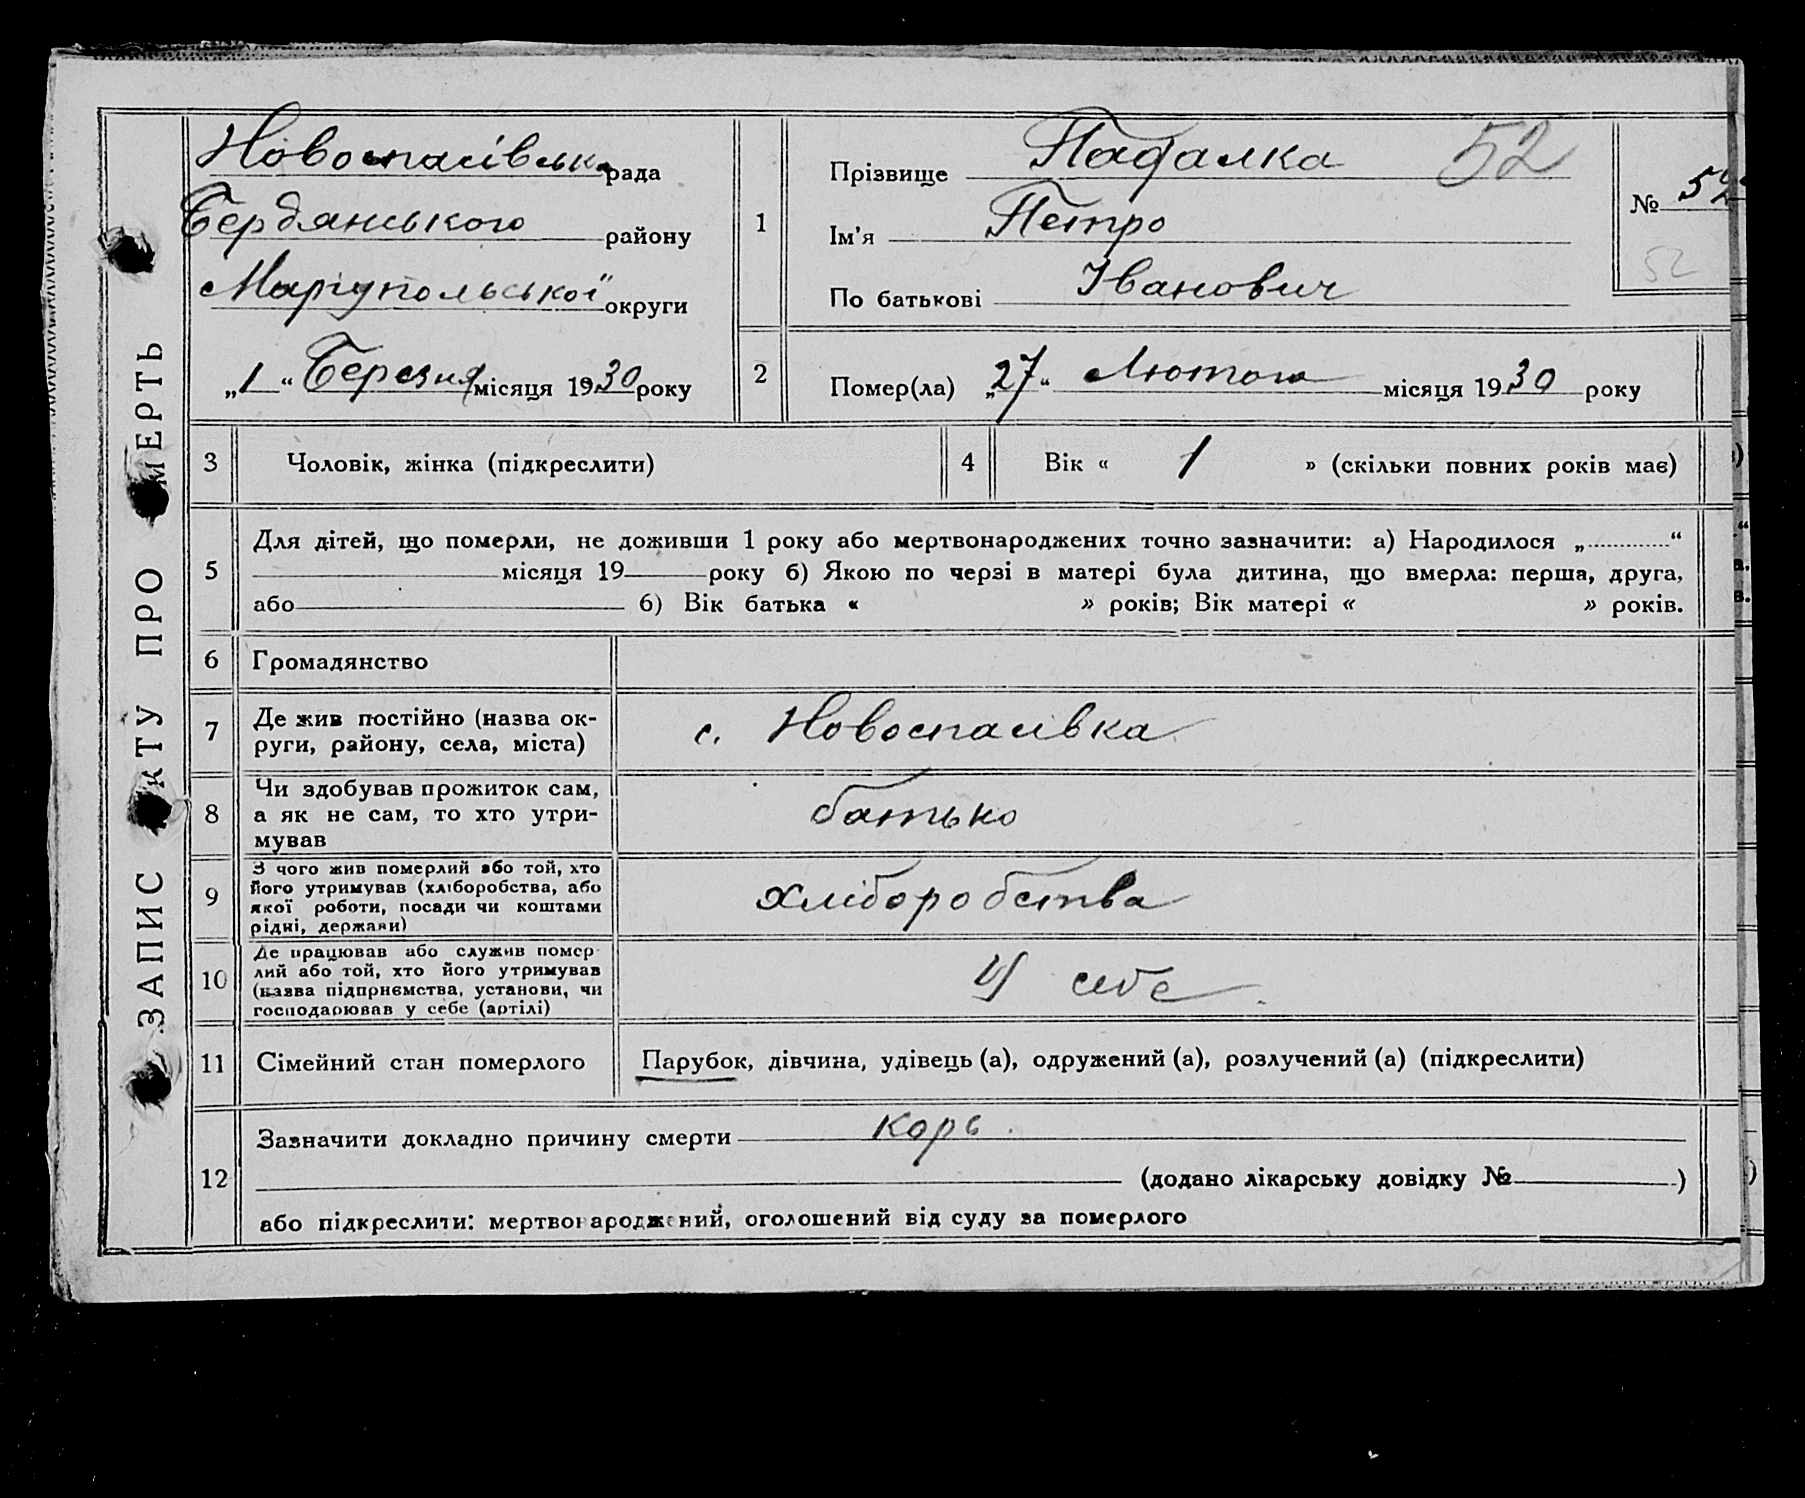 ЗАПИС АКТУ ПРО СМЕРТЬ
Новоспасівська рада
Бердянського району
Маріупольської округи
„1“ Березня місяця 1930 року
1
Прізвище Падалка 52
Ім'я Петро
По батькові Іванович
№ 52
52
2 Помер(ла) „27“ Лютого місяця 1930 року
3 Чоловік, жінка (підкреслити)
4 Вік « 1 » (скільки повних років має)
5
Для дітей, що померли, не доживши 1 року або мертвонароджених точно зазначити: а) Народилося „............“
місяця 19 року б) Якою по черзі в матері була дитина, що вмерла: перша, друга,
або б) Вік батька « » років; Вік матері « » років.
6 Громадянство
7 Де жив постійно (назва ок-
руги, району, села, міста)
с. Новоспасівка
8 Чи здобував прожиток сам,
а як не сам, то хто утри-
мував
батько
9 З чого жив померлий або той, хто
його утримував (хліборобства, або
якої роботи, посади чи коштами
рідні, держави)
хліборобства
10 Де працював або служив помер-
лий або той, хто його утримував
(назва підприємства, установи, чи
господарював у себе (артілі)
У себе
11 Сімейний стан померлого
Парубок, дівчина, удівець (а), одружений (а), розлучений (а) (підкреслити)
12
Зазначити докладно причину смерти корь.
(додано лікарську довідку № )
або підкреслити: мертвонароджений, оголошений від суду за померлого